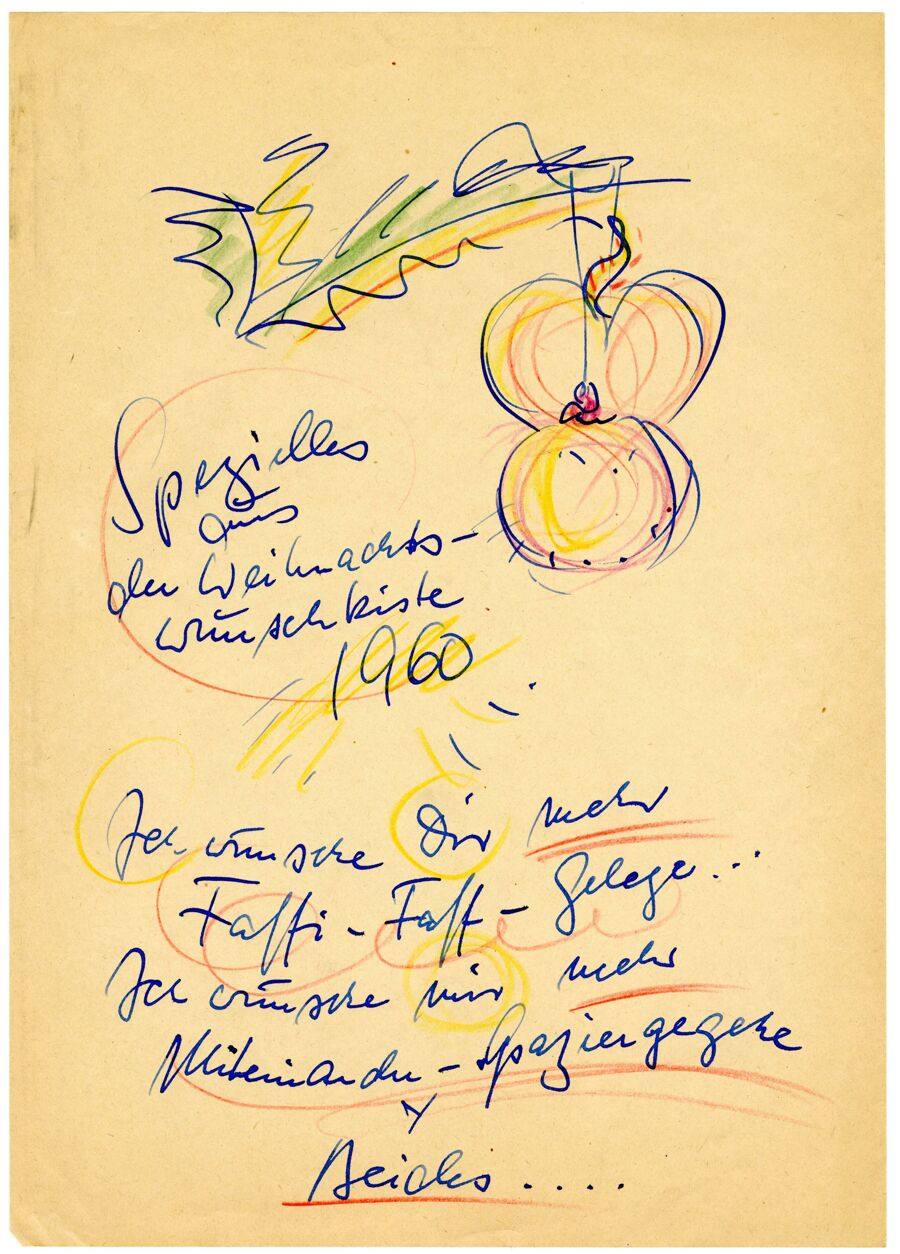 Spezielles
aus
der Weihnachts-
wünschkiste
1960
Ich wünsche Dir mehr
Faffi-Faff-Gelege...
Ich wünsche mir mehr
Miteinander-Spaziergegehe
Beides ....